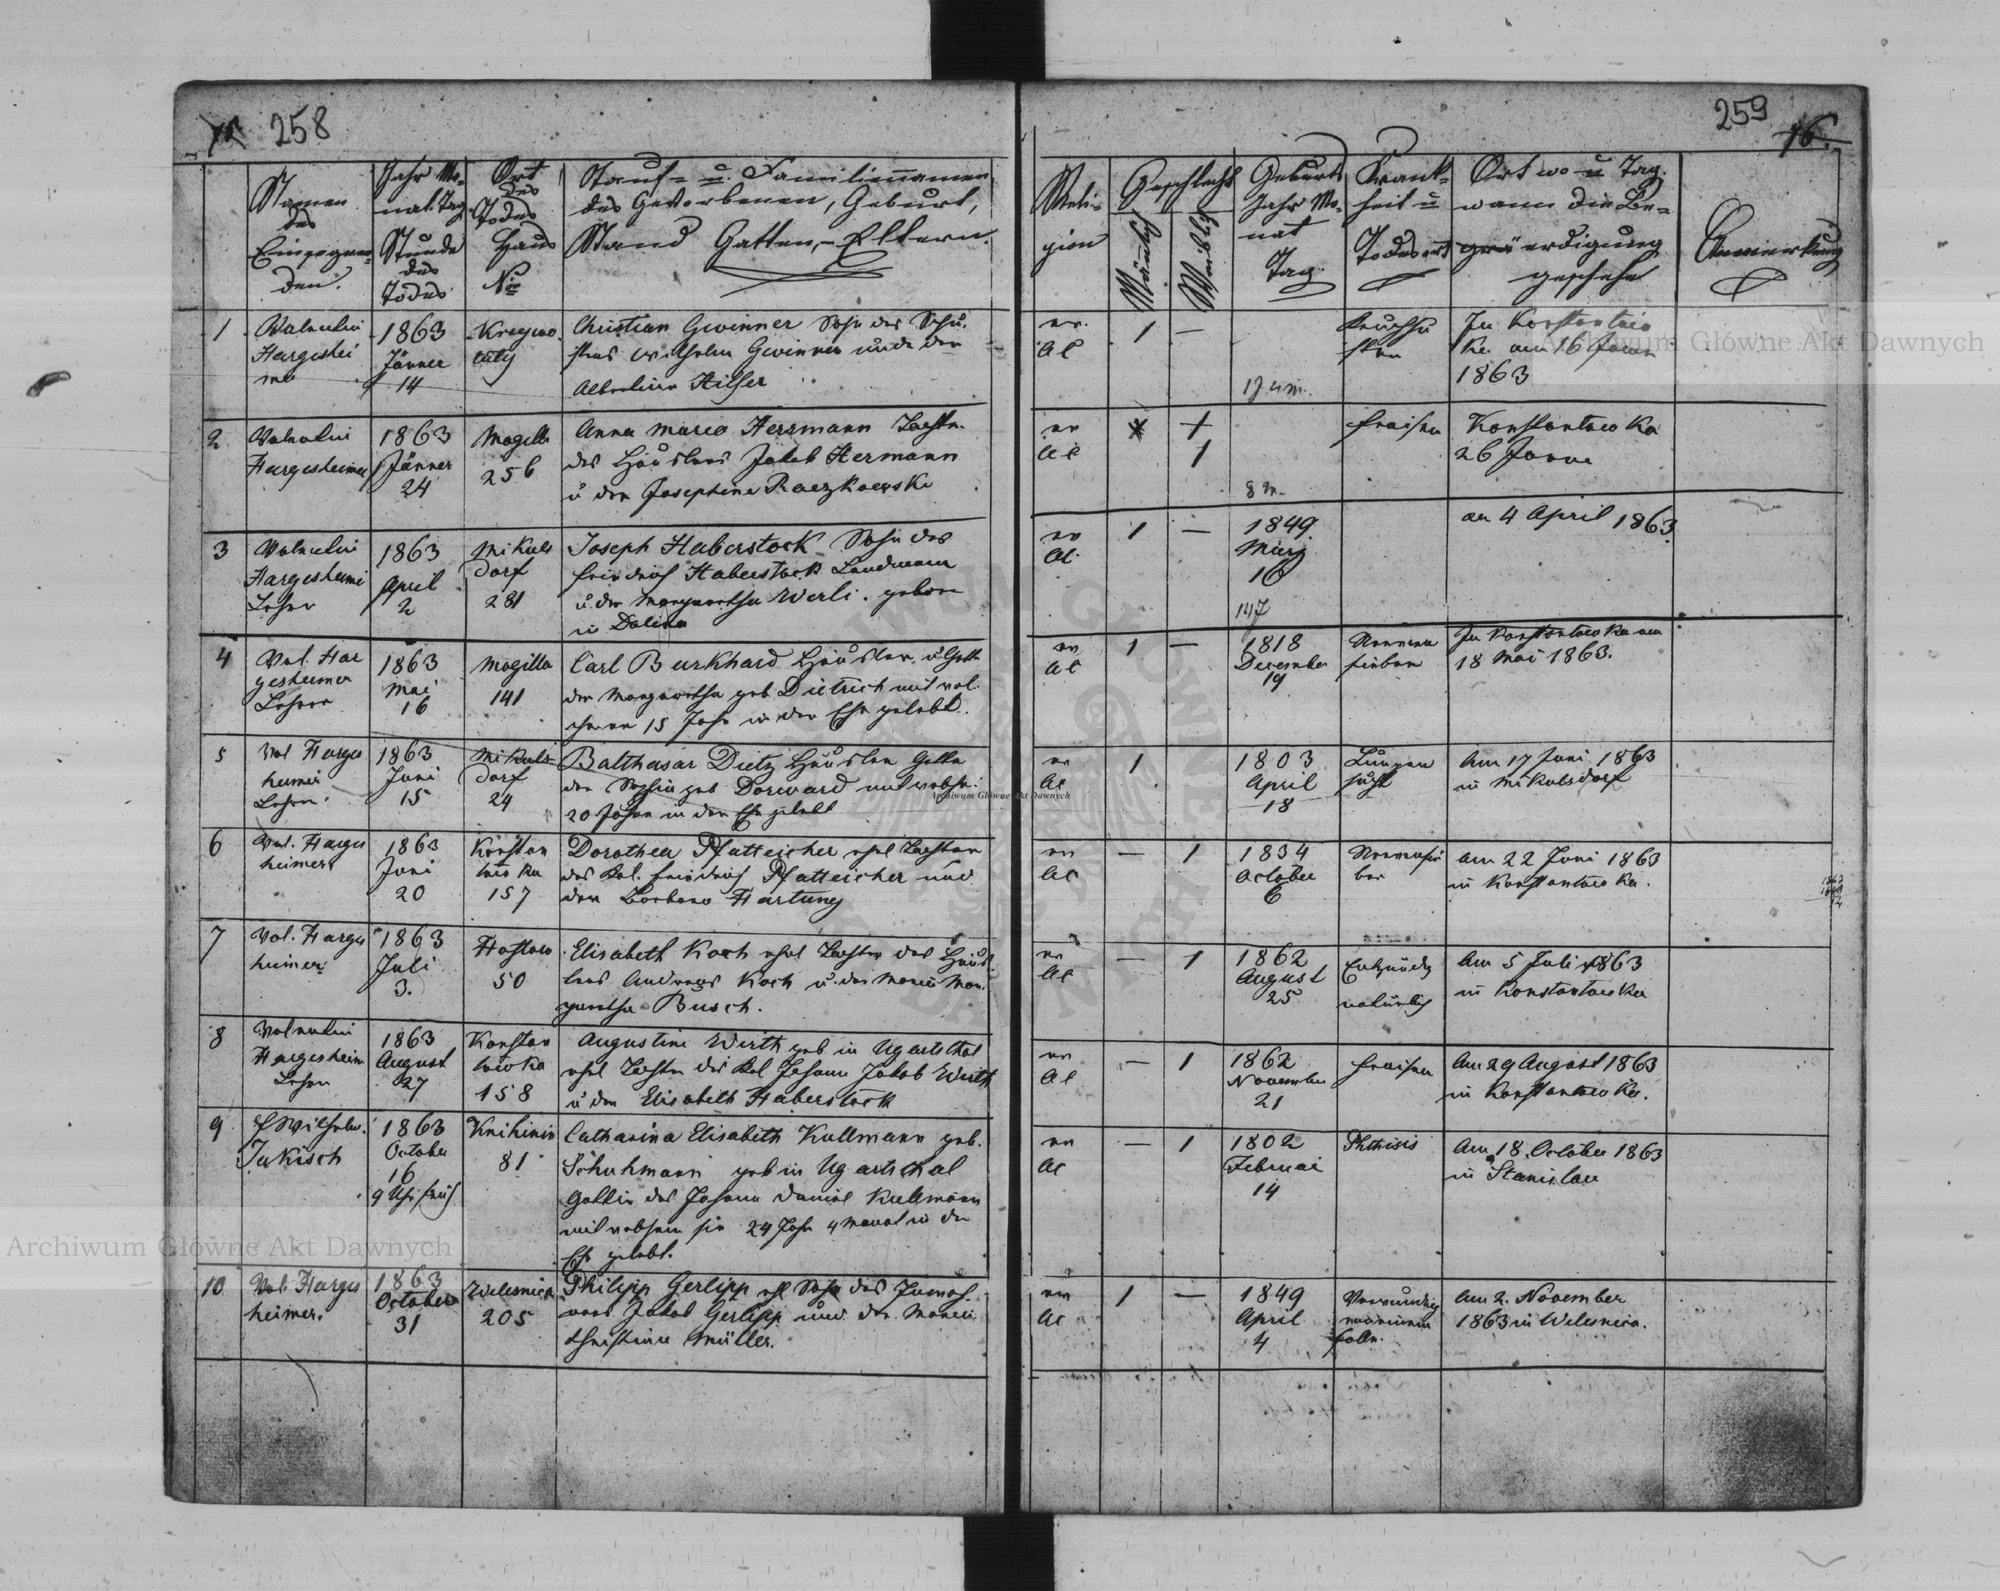 258
Namen
des
Einsegnen-
den.
Jahr Mo-
nat. Tag
Stunde
des
Todes
Ort
des
Todes
Haus
No
Tauf- u. Familiennamen
des Gestorbenen, Geburt,
Stand Gatten,- Eltern.
1
Valentin
Hargeshei
mer
1863
Jänner
14
Krzywo
tuly
Christian Gwinner Sohn des Schu-
sters Wilhelm Gwinner und der
Albertine Hilser
2
Valentin
Hargesheimer
1863
Jänner
24
Mogilla
256
Anna Maria Herrmann Tochter
des Häuslers Jakob Hermann
u der Josephine Raczkowska
3
Valentin
Hargesheimer
Lehrer
1863
April
2
Mikuls
dorf
281
Joseph Haberstock Sohn des
Friedrich Haberstock Landmann
u. der Margaretha Werli. geboren
in Dolina
4
Val. Har
gesheimer
Lehrer
1863
Mai
16
Mogilla
141
Carl Burkhard Häusler, u Gatte
der Margaretha geb Dietrich mit wel
cher er 15 Jahr in der Ehe gelebt.
5
Val Harges
heimer
Lehrer.
1863
Juni
15
Mikuls
dorf
24
Balthasar Dietz Häusler Gatte
der Sophia geb Dorward mit welcher
20 Jahre in der Ehe gelebt
6
Val. Harges
heimer
1863
Juni
20
Konstan
tow ka
157
Dorothea Pfatteicher ehel Tochter
des Kol. Friedrich Pfatteicher und
der Barbara Hartung
7
Val. Harges
heimer
1863
Juli
3.
Hostow
50
Elisabeth Koch ehel Tochter des Häus-
lers Andreas Koch u. der Maria Mar-
garetha Busch.
8
Valentin
Hargesheim
Lehrer
1863
August
27
Konstan
towka
158
Augustine Wirth geb in Ugartsthal
ehel Tochter des Kol Johann Jakob Wirth
u der Elisabeth Haberstock
9
Wilhelm
Jukisch
1863
October
16
9 Uhr früh
Knihinin
81
Catharina Elisabeth Kullmann geb.
Schuhmann geb in Ugartsthal
Gattin des Johann Daniel Kullmann
mit welchem sie 24 Jahr 4 Monat in der
Ehe gelebt.
10
Val Harges
heimer.
1863
October
31
Welesnica
205
Philipp Gerlipp ehl Sohn des
Jakob Gerlipp und der Maria
Christine Müller.
259
16.
Reli-
gion
Geschlecht
Männlich
Weiblich
Geburts
Jahr Mo-
nat
Tag.
Krank-
heit u
Todesart
Ort wo u Tag.
wann die Be-
erdigung
geschehe
Anmerkung
ev.
AC
1
—
In Konstantow
ka am 16 Jänner
1863
ev
AC
1
8 m.
Fraisen
Konstantowka
26 Jänner
ev
AC
1
—
1849
März
16
am 4 April 1863
ev
AC
1
—
1818
December
19
Nerven
fieber
In Konstantowka am
18 Mai 1863.
ev
AC
1
1803
April
18
Lungen
sucht
Am 17 Juni 1863
in Mikulsdorf
ev
AC
—
1
1834
October
6
Nervenfie
ber
am 22 Juni 1863
in Konstantowka.
ev
AC
—
1
1862
August
25
natürlich
Am 5 Juli 1863
in Konstantowka
ev
AC
—
1
1862
November
21
Fraisen
Am 29 August 1863
in Konstantowka.
ev
AC
—
1
1802
Februar
14
Phthisis
Am 18 October 1863
in Stanislau
ev
AC
1
—
1849
April
4
Am 2. November
1863 in Welesnica.
Archiwum Główne Akt Dawnych
Archiwum Główne Akt Dawnych
Archiwum Główne Akt Dawnych